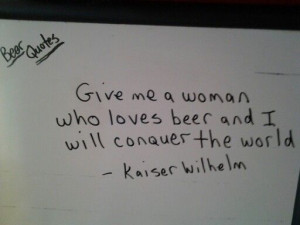 Beer
Quotes
Give me a woman
who loves beer and I
will conquer the world
- Kaiser Wilhelm